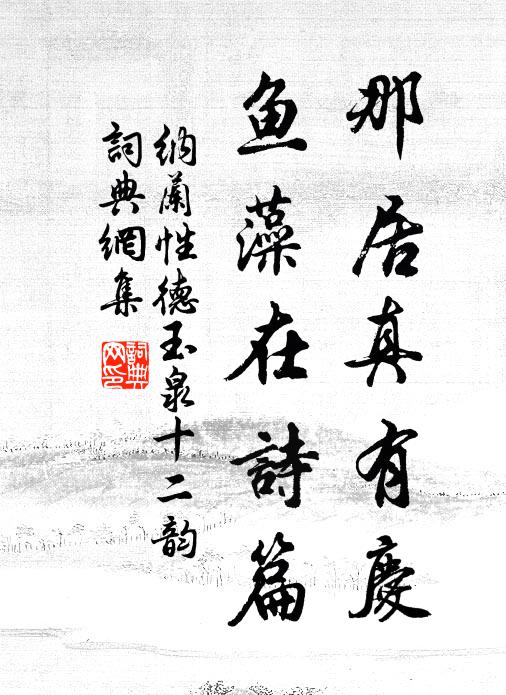 那居真有慶
鱼藻在詩篇
納蘭性德玉泉十二韵
詞典網集
詞典网印